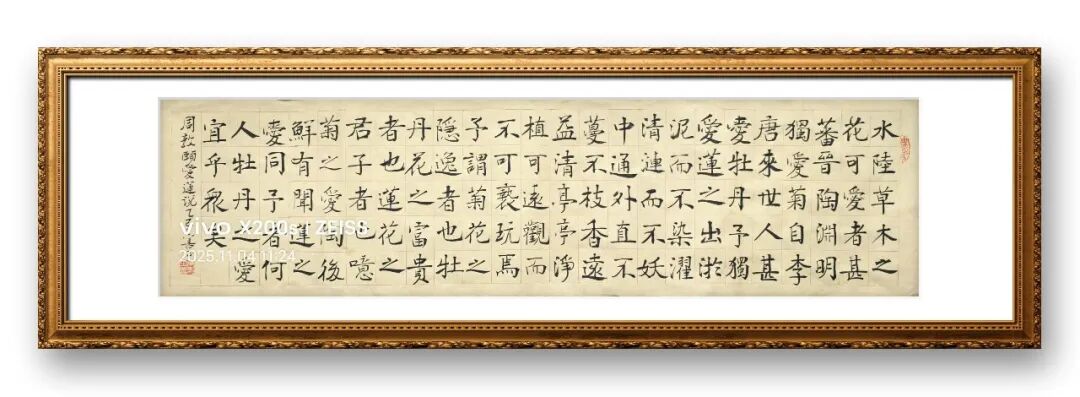 水陸草木之
花可愛者甚
蕃晉陶淵明
獨愛菊自李
唐來世人甚
愛牡丹予獨
愛蓮之出淤
泥而不染濯
清漣而不妖
中通外直不
蔓不枝香遠
益清亭亭淨
植可遠觀而
不可褻玩焉
予謂菊花之
隱逸者也牡
丹花之富貴
者也蓮花之
君子者也噫
菊之愛陶後
鮮有聞蓮之
愛同予者何
人牡丹之愛
宜乎眾矣
周敦頤愛蓮說乙巳
vivo X200s | ZEISS
2025.11.04 11:24